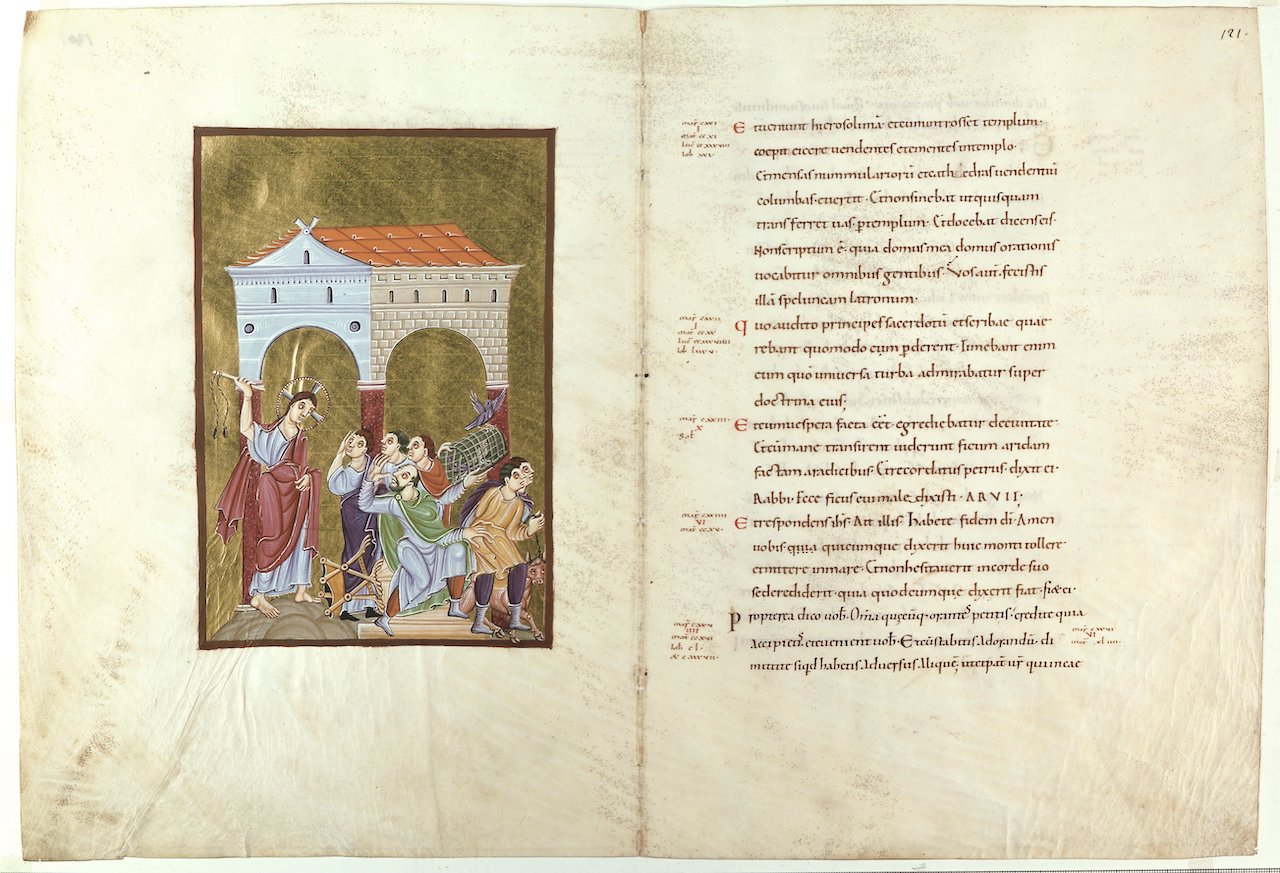 121.
E tueniunt hierosolimā. etcumintroisset templum.
coepit eicere uendentes etementes intemplo.
Etmensas nummulariorū etcathedras uendentiū
columbas. euertit. Etnonsinebat utquisquam
transferret uas ptemplum. Etdocebat dicenseis.
Nonscriptum ē. quia domusmea domus orationis
uocabitur omnibus gentibus. Vos aut. fecistis
illā speluncam latronum.
q uo audito principes sacerdotū etscribae quae
rebant quomodo eum pderent. Timebant enim
eum quō uniuersa turba admirabatur super
doctrina eius;
E tcumuespera facta eēt. egrediebatur deciuitate.
Etcūmane transirent uiderunt ficum aridam
factam aradicibus. Etrecordatus petrus. dixit ei.
Rabbi. Ecce ficus cui male dixisti. ARVIT.
E trespondens ihs. Ait illis. habete fidem dī. Amen
uobis quia quicumque dixerit huic monti tollere
etmittere inmare. Etnonhesitauerit incorde suo
sedcrediderit. quia quodcumque dixerit fiat. fiet ei.
P ropterea dico uob. Omia orantes petitis. credite quia
Accipietis. eteuenient uob. Etcūstabitis Adorandū. di
mittite siqd habetis Aduersus Aliquē. utetpat ur quiincae